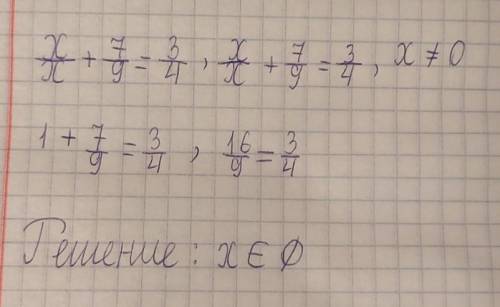 x/x + 7/9 = 3/4 , x/x + 7/9 = 3/4 , x ≠ 0
1 + 7/9 = 3/4 , 16/9 = 3/4
Решение : x ∈ ∅